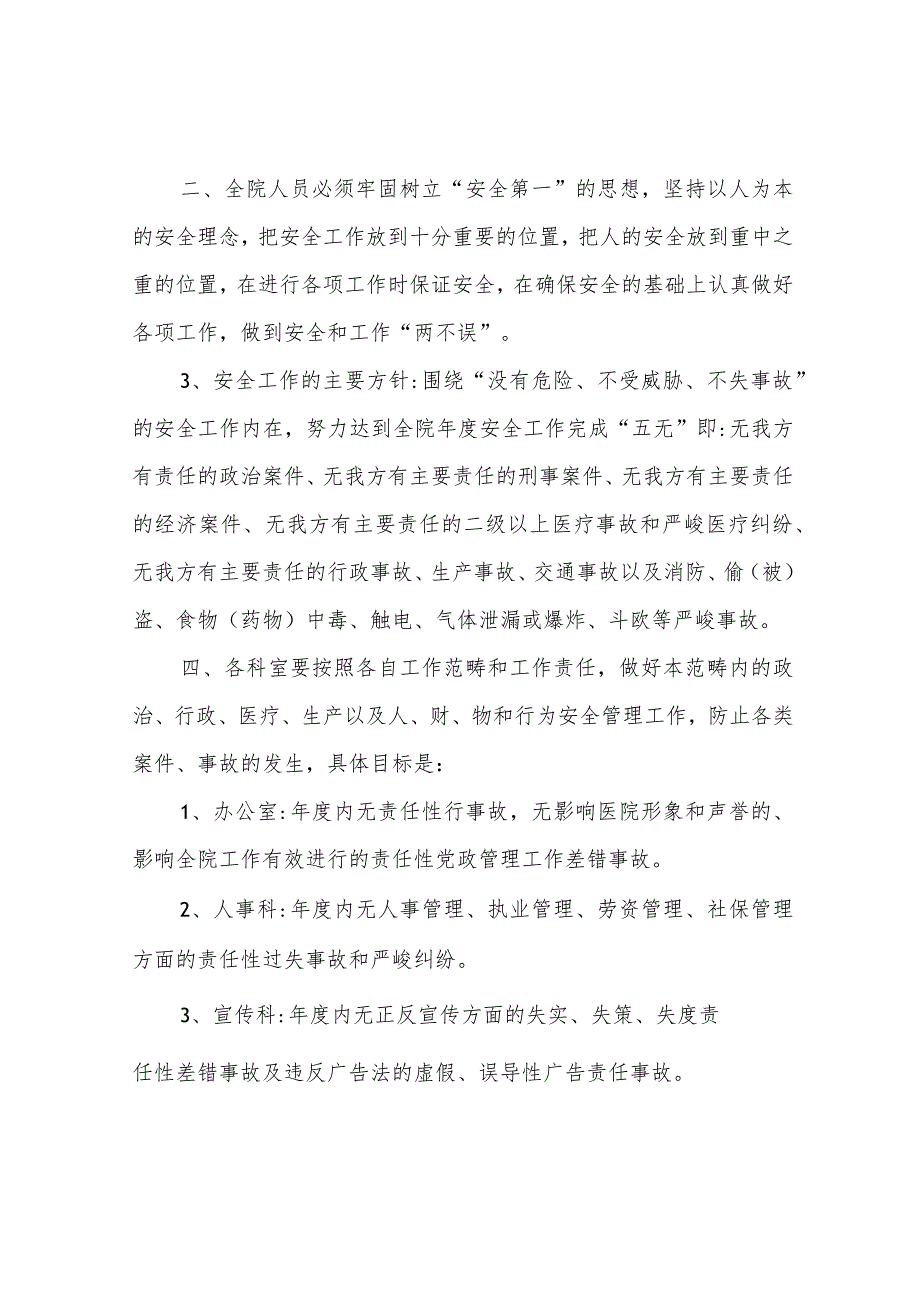 二、全院人员必须牢固树立“安全第一”的思想，坚持以人为本
的安全理念，把安全工作放到十分重要的位置，把人的安全放到重中之
重的位置，在进行各项工作时保证安全，在确保安全的基础上认真做好
各项工作，做到安全和工作“两不误”。
3、安全工作的主要方针：围绕“没有危险、不受威胁、不失事故”
的安全工作内在，努力达到全院年度安全工作完成“五无”即：无我方
有责任的政治案件、无我方有主要责任的刑事案件、无我方有主要责任
的经济案件、无我方有主要责任的二级以上医疗事故和严峻医疗纠纷、
无我方有主要责任的行政事故、生产事故、交通事故以及消防、偷（被）
盗、食物（药物）中毒、触电、气体泄漏或爆炸、斗欧等严峻事故。
四、各科室要按照各自工作范畴和工作责任，做好本范畴内的政
治、行政、医疗、生产以及人、财、物和行为安全管理工作，防止各类
案件、事故的发生，具体目标是：
1、办公室：年度内无责任性行事故，无影响医院形象和声誉的、
影响全院工作有效进行的责任性党政管理工作差错事故。
2、人事科：年度内无人事管理、执业管理、劳资管理、社保管理
方面的责任性过失事故和严峻纠纷。
3、宣传科：年度内无正反宣传方面的失实、失策、失度责
任性差错事故及违反广告法的虚假、误导性广告责任事故。